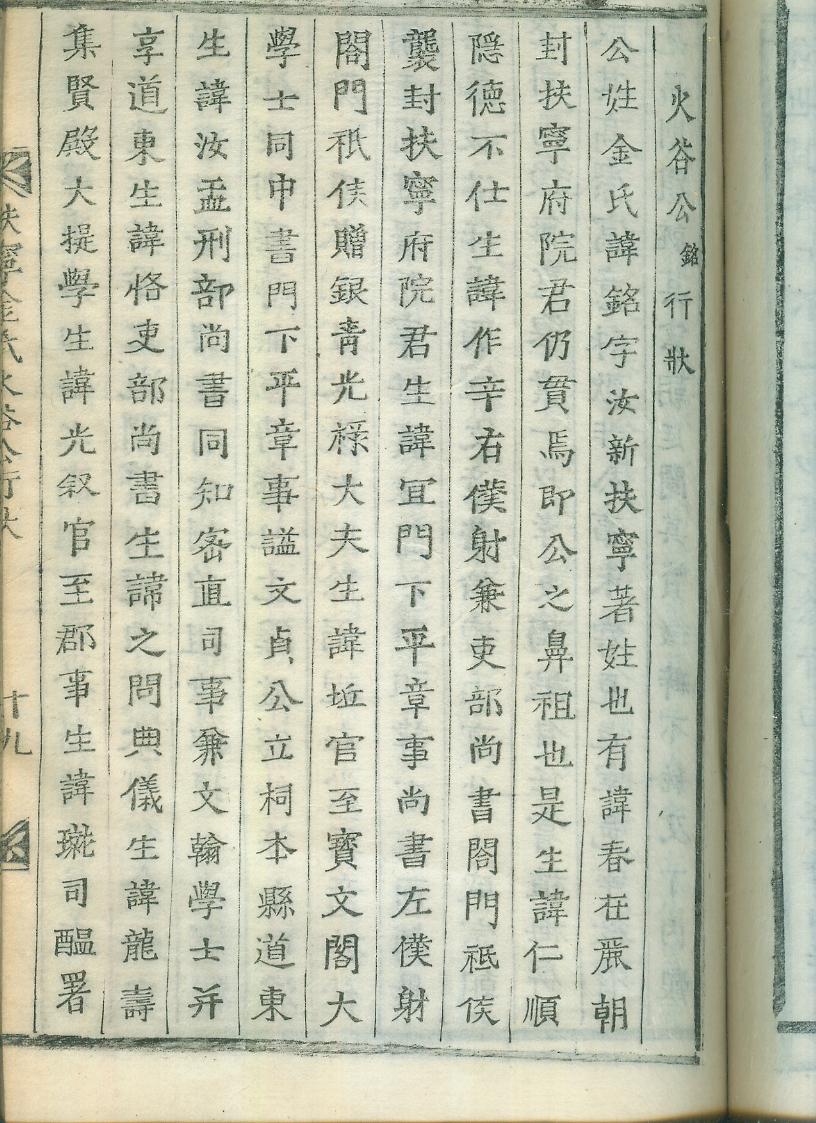 火谷公銘行狀
公姓金氏諱銘字汝新扶寧著姓也有諱春在麗朝
封扶寧府院君仍貫焉即公之鼻祖也是生諱仁順
隱德不仕生諱作辛右僕射兼吏部尚書閤門祗侯
襲封扶寧府院君生諱宜門下平章事尚書左僕射
閤門祗侯贈銀青光祿大夫生諱坵官至寶文閣大
學士同中書門下平章事謚文貞公立祠本縣道東
生諱汝盂刑部尚書同知密直司事兼文翰學士并
享道東生諱恪吏部尚書生諱之問典儀生諱龍壽
集賢殿大提學生諱光叙官至郡事生諱璥司醞署
扶寧金氏火谷公行狀 十九